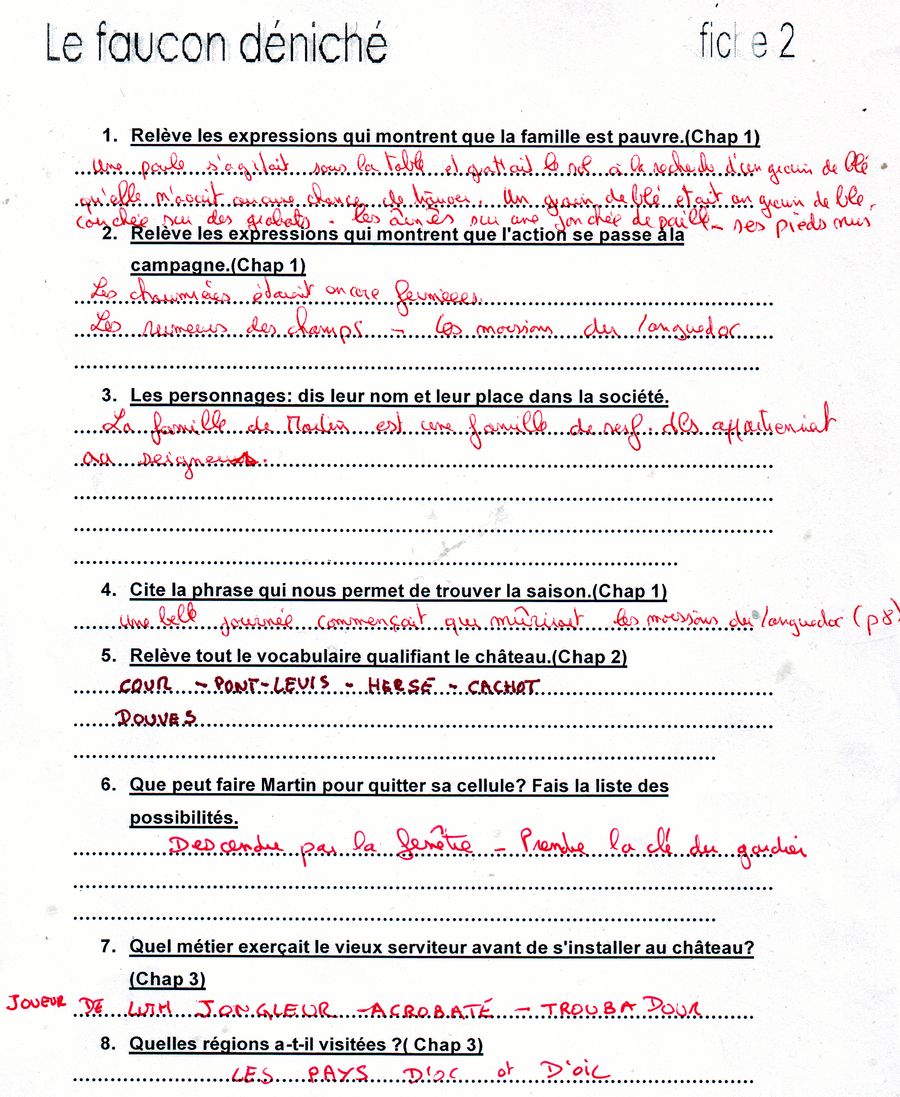 Le faucon déniché fiche 2
1. Relève les expressions qui montrent que la famille est pauvre.(Chap 1)
Une poule s'agitait sous la table et grattait le sol à la recherche d'un grain de blé
qu'elle n'avait aucune chance de trouver. Un grain de blé était un grain de blé,
couchée sur des grabats - les aînés sur une jonchée de paille - ses pieds nus
2. Relève les expressions qui montrent que l'action se passe àla
campagne.(Chap 1)
Les chaumières étaient encore fermées.
Les rumeurs des champs - Les moissons du languedoc
3. Les personnages: dis leur nom et leur place dans la société.
La famille de Martin est une famille de serf. Ils appartiennent
au seigneur.
4. Cite la phrase qui nous permet de trouver la saison.(Chap 1)
une belle journée commençait qui mûrirait les moissons du languedoc (p8)
5. Relève tout le vocabulaire qualifiant le château.(Chap 2)
COUR - PONT-LEVIS - HERSE - CACHOT
DOUVES
6. Que peut faire Martin pour quitter sa cellule? Fais la liste des
possibilités.
Descendre par la fenêtre - Prendre la clé du gardien
7. Quel métier exerçait le vieux serviteur avant de s'installer au château?
(Chap 3)
JOUEUR DE LUTH JONGLEUR - ACROBATE - TROUBADOUR
8. Quelles régions a-t-il visitées ?( Chap 3)
LES PAYS D'OC et D'OIL